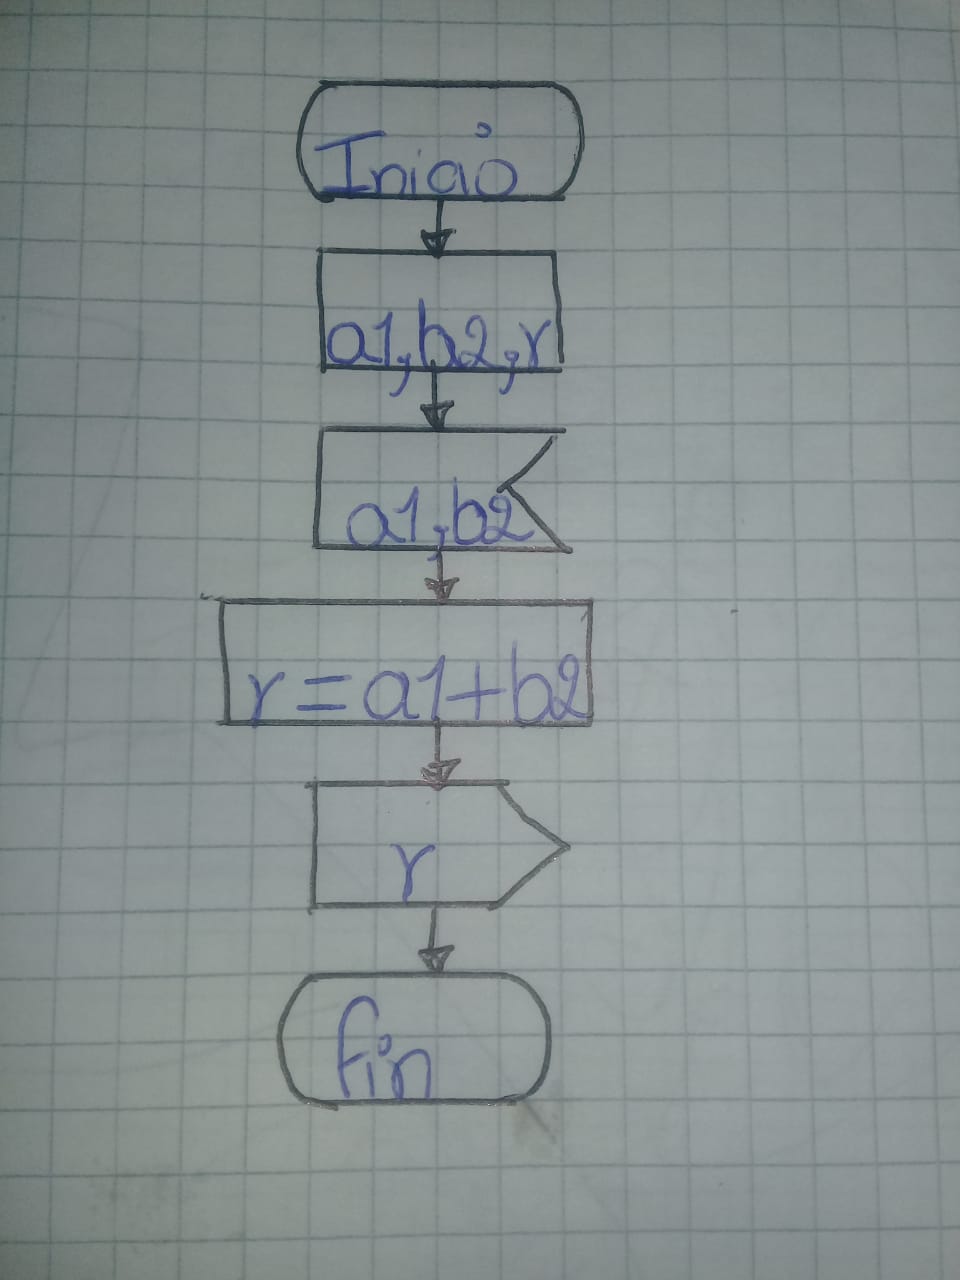 Inicio
a1,b2,r
a1,b2
r=a1+b2
r
fin